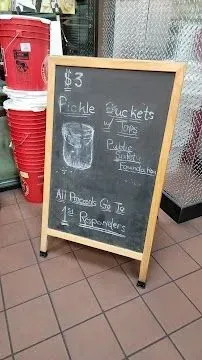 $3
Pickle Buckets
w/ Tops
Public
Safety
Foundation
All Proceeds Go To
1st Responders